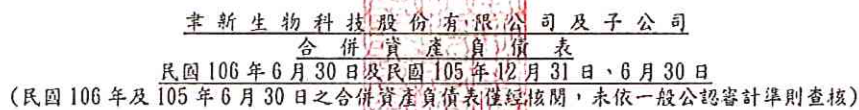 聿新生物科技股份有限公司及子公司
合併資產負債表
民國106年6月30日及民國105年12月31日、6月30日
(民國106年及105年6月30日之合併資產負債表僅經核閱，未依一般公認審計準則查核)